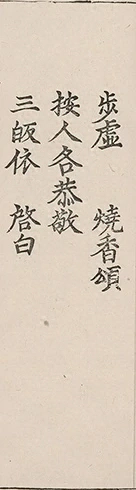 步虛　燒香頌
按人各恭敬
三皈依　啓白